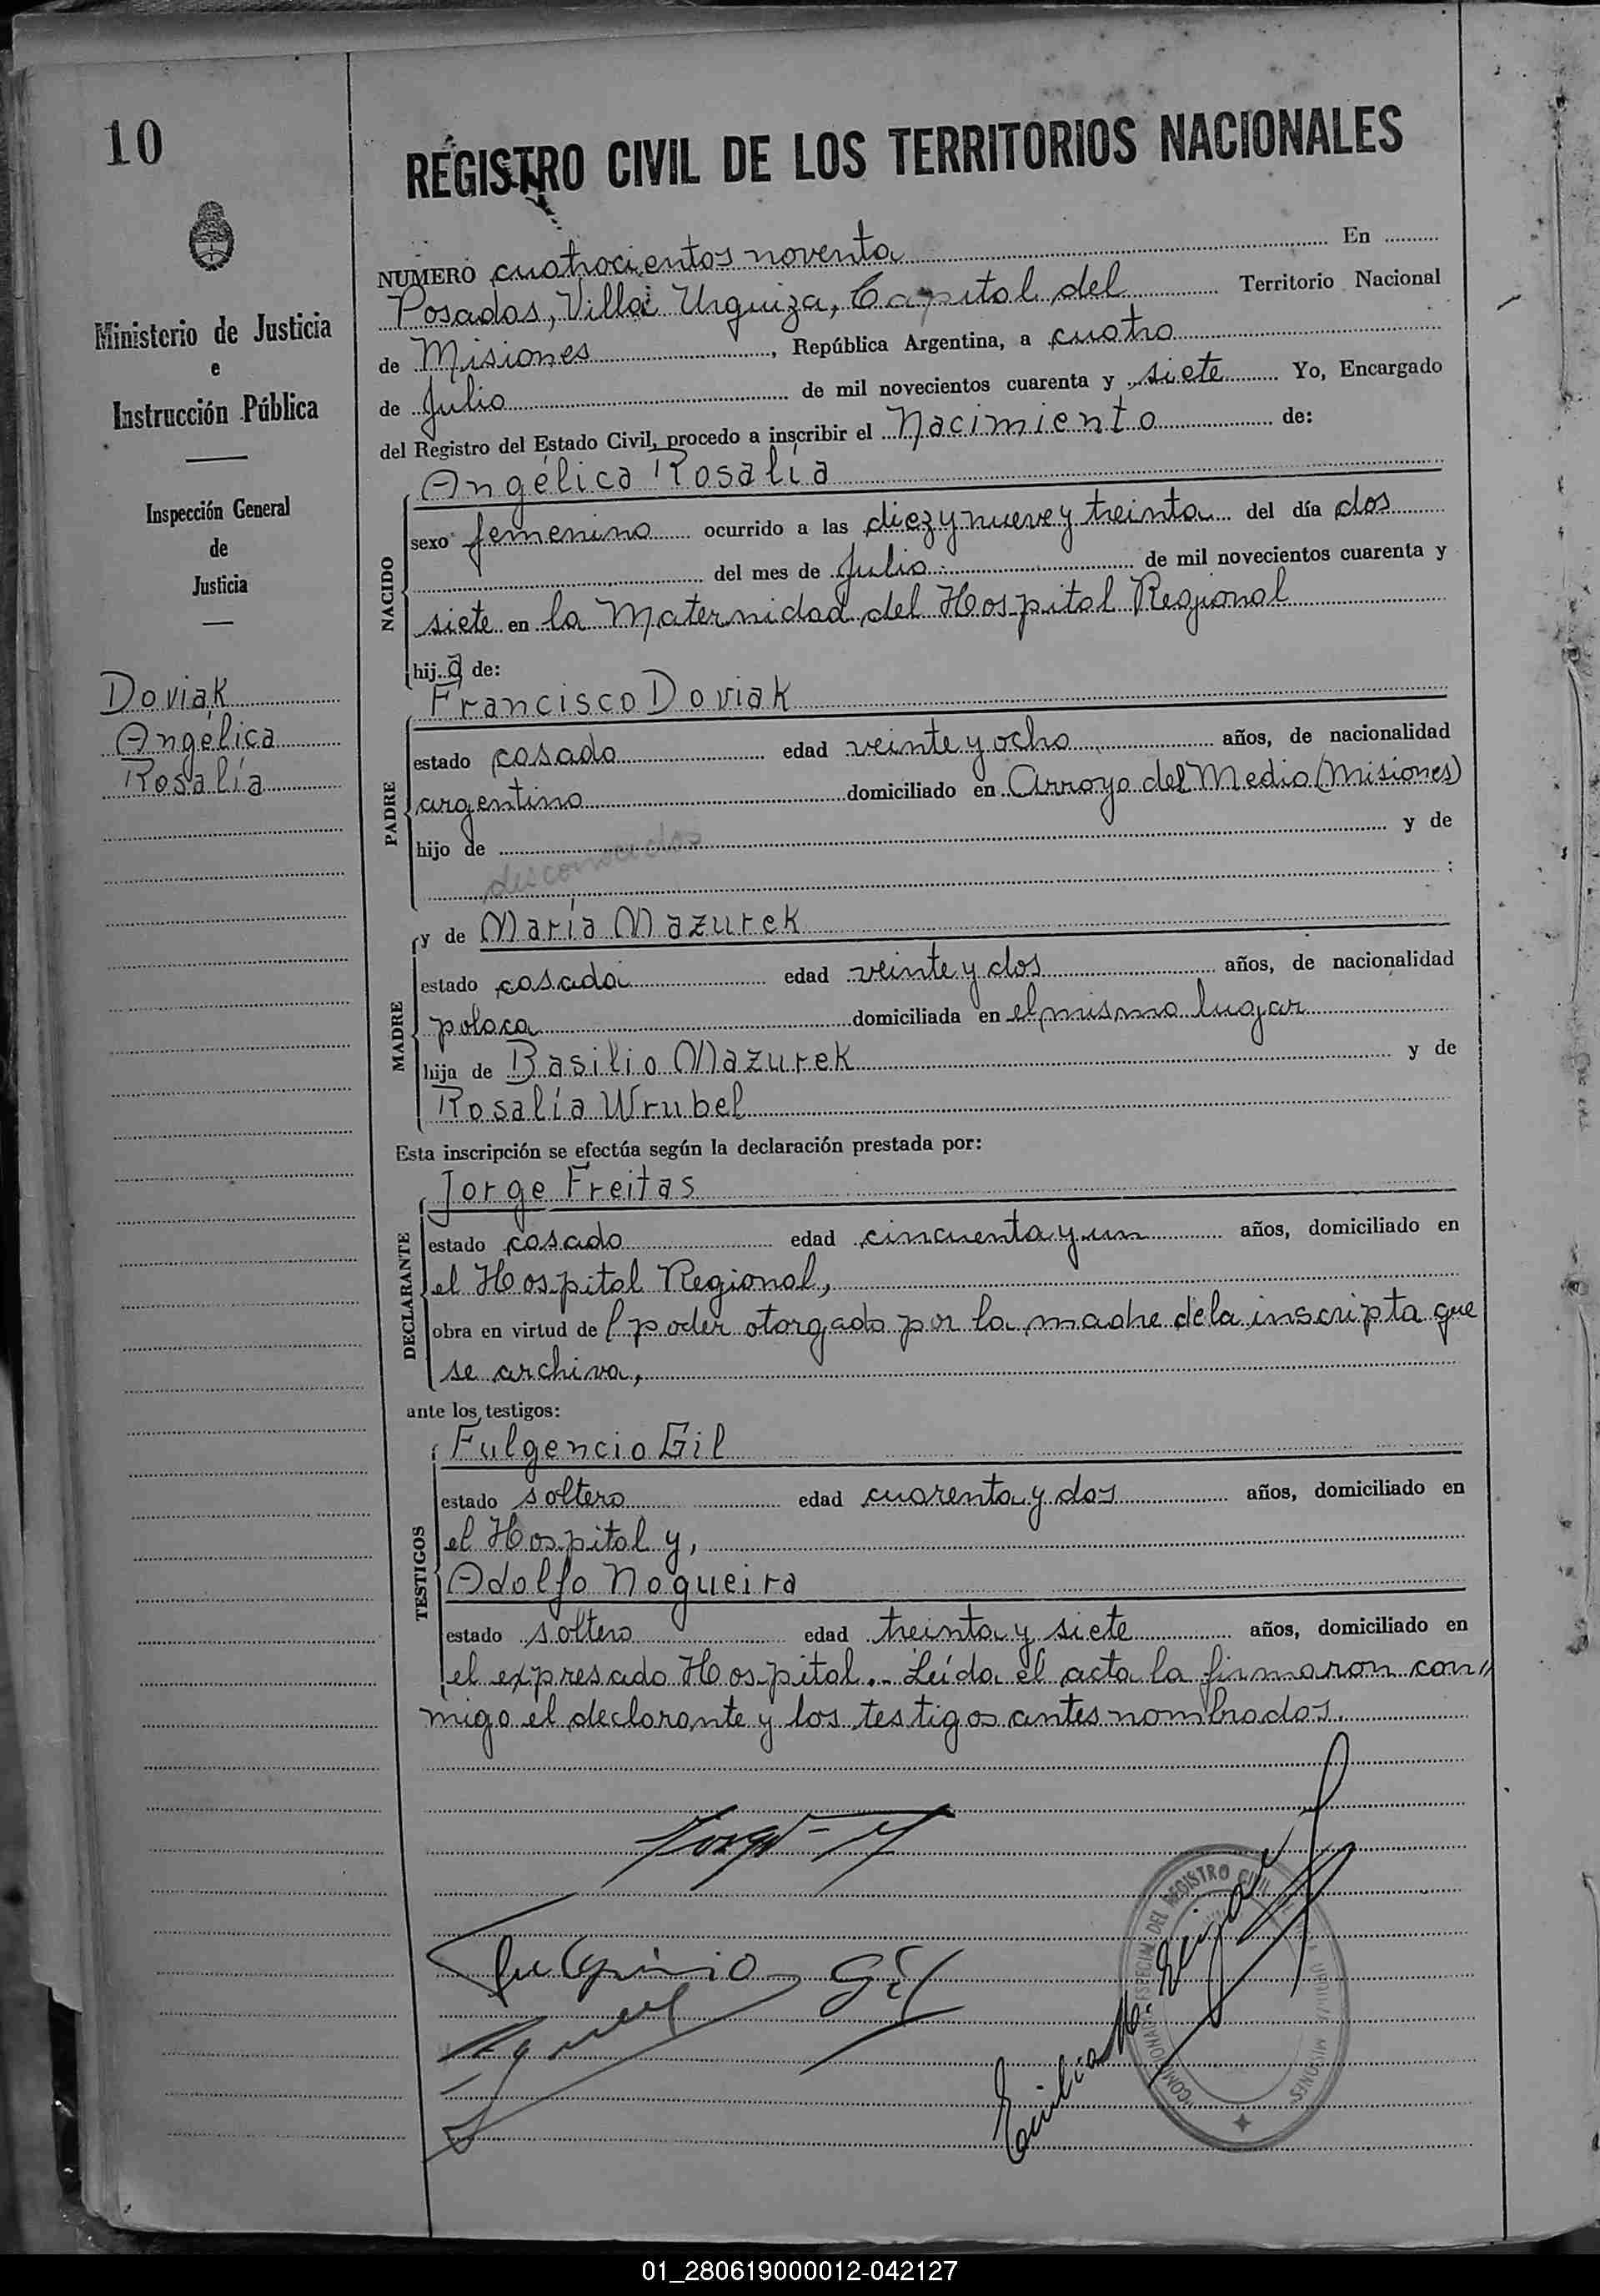 10
Ministerio de Justicia
e
Instrucción Pública
Inspección General
de
Justicia
Doviak
Angélica
Rosalía
REGISTRO CIVIL DE LOS TERRITORIOS NACIONALES
NUMERO cuatrocientos noventa En
Posadas, Villa Urquiza, Capital del Territorio Nacional
de Misiones, República Argentina, a cuatro
de Julio de mil novecientos cuarenta y siete Yo, Encargado
del Registro del Estado Civil, procedo a inscribir el Nacimiento de:
NACIDO
Angélica Rosalía
sexo femenino ocurrido a las diez y nueve y treinta del día dos
del mes de Julio de mil novecientos cuarenta y
siete en la Maternidad del Hospital Regional
hija de:
PADRE
Francisco Doviak
estado casado edad veinte y ocho años, de nacionalidad
argentino domiciliado en Arroyo del Medio (Misiones)
hijo de y de
desconocidos
MADRE
y de María Mazurek
estado casada edad veinte y dos años, de nacionalidad
polaca domiciliada en el mismo lugar
hija de Basilio Mazurek y de
Rosalía Wrubel
Esta inscripción se efectúa según la declaración prestada por:
DECLARANTE
Jorge Freitas
estado casado edad cincuenta y un años, domiciliado en
el Hospital Regional,
obra en virtud del poder otorgado por la madre de la inscripta que
se archiva,
ante los testigos:
TESTIGOS
Fulgencio Gil
estado soltero edad cuarenta y dos años, domiciliado en
el Hospital y,
Adolfo Nogueira
estado soltero edad treinta y siete años, domiciliado en
el expresado Hospital.- Leída el acta la firmaron con//
migo el declarante y los testigos antes nombrados.
Fulgencio Gil
DEL REGISTRO CIVIL
MISIONES
01_280619000012-042127